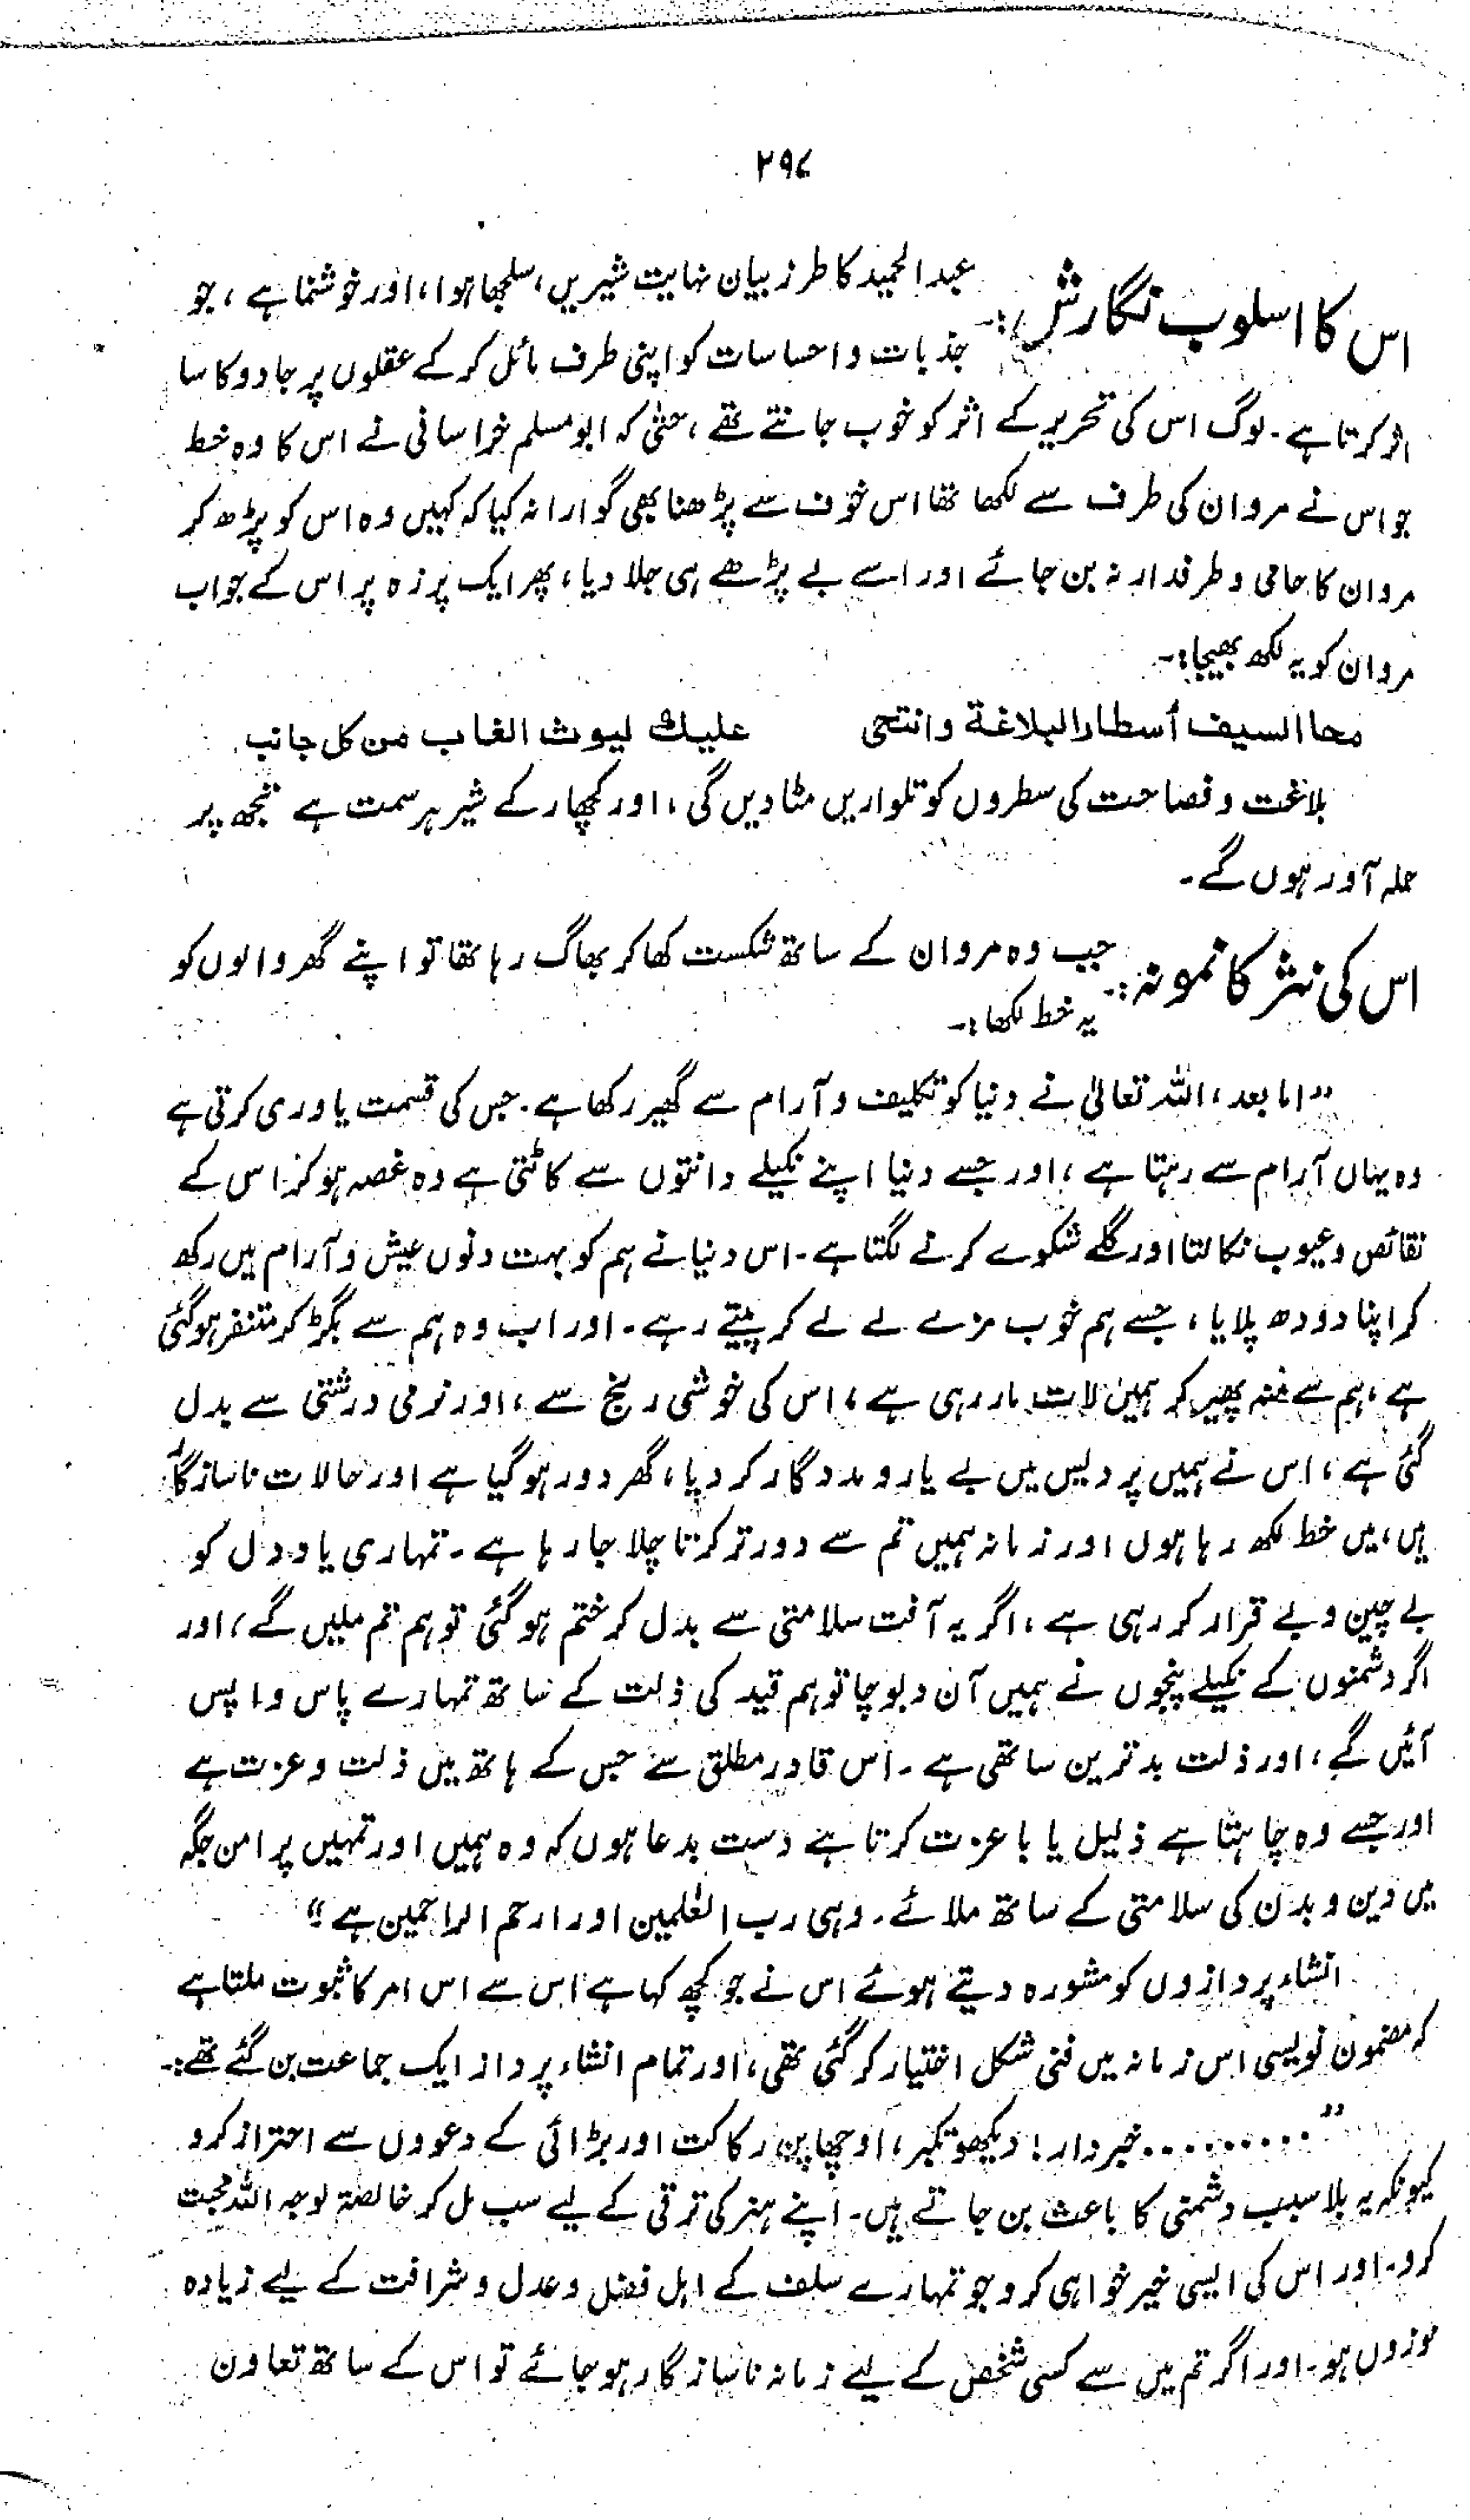 ۲۹۷
اس کا اسلوب نگارش:۔ عبد الحمید کا طرز بیان نہایت شیریں، سلجھا ہوا، اور خوشنما ہے، جو
جذبات و احساسات کو اپنی طرف مائل کر کے عقلوں پر جادو کا سا
اثر کرتا ہے۔ لوگ اس کی تحریر کے اثر کو خوب جانتے تھے، حتٰی کہ ابو مسلم خراسانی نے اس کا وہ خط
جو اس نے مروان کی طرف سے لکھا تھا اس خوف سے پڑھنا بھی گوارا نہ کیا کہ کہیں وہ اس کو پڑھ کر
مروان کا حامی و طرفدار نہ بن جائے اور اسے بے پڑھے ہی جلا دیا، پھر ایک پرزہ پر اس کے جواب
مروان کو یہ لکھ بھیجا:۔
محا السيف أسطار البلاغة وانتحى عليك ليوث الغاب من كل جانب
بلاغت و فصاحت کی سطروں کو تلواریں مٹا دیں گی، اور کچھار کے شیر ہر سمت ہے تجھ پر
حملہ آور ہوں گے۔
اس کی نثر کا نمونہ:۔ جب وہ مروان کے ساتھ شکست کھا کر بھاگ رہا تھا تو اپنے گھر والوں کو
یہ خط لکھا:۔
”اما بعد، اللہ تعالیٰ نے دنیا کو تکلیف و آرام سے گھیر رکھا ہے۔ جس کی قسمت یاوری کرتی ہے
وہ یہاں آرام سے رہتا ہے، اور جسے دنیا اپنے نکیلے دانتوں سے کاٹتی ہے وہ غصہ ہو کر اس کے
نقائص و عیوب نکالتا اور گلے شکوے کرنے لگتا ہے۔ اس دنیا نے ہم کو بہت دنوں عیش و آرام میں رکھ
کر اپنا دودھ پلایا، جسے ہم خوب مزے لے لے کر پیتے رہے۔ اور اب وہ ہم سے بگڑ کر متنفر ہو گئی
ہے، ہم سے منہ پھیر کر ہمیں لات مار رہی ہے، اس کی خوشی رنج سے، اور نرمی درشتی سے بدل
گئی ہے، اس نے ہمیں پردیس میں بے یار و مددگار کر دیا، گھر دور ہو گیا ہے اور حالات ناسازگار
ہیں، میں خط لکھ رہا ہوں اور زمانہ ہمیں تم سے دور تر کرتا چلا جا رہا ہے۔ تمہاری یاد دل کو
بے چین و بے قرار کر رہی ہے، اگر یہ آفت سلامتی سے بدل کر ختم ہو گئی تو ہم تم ملیں گے، اور
اگر دشمنوں کے نکیلے پنجوں نے ہمیں آن دبوچا تو ہم قید کی ذلت کے ساتھ تمہارے پاس واپس
آئیں گے، اور ذلت بدترین ساتھی ہے۔ اس قادر مطلق سے جس کے ہاتھ میں ذلت و عزت ہے
اور جسے وہ چاہتا ہے ذلیل یا باعزت کرتا ہے دست بدعا ہوں کہ وہ ہمیں اور تمہیں پر امن جگہ
میں دین و بدن کی سلامتی کے ساتھ ملائے۔ وہی رب العٰلمین اور ارحم الراحمین ہے“
انشاء پردازوں کو مشورہ دیتے ہوئے اس نے جو کچھ کہا ہے اس سے اس امر کا ثبوت ملتا ہے
کہ مضمون نویسی اس زمانہ میں فنی شکل اختیار کر گئی تھی، اور تمام انشاء پرداز ایک جماعت بن گئے تھے:۔
”.........خبردار! دیکھو تکبر، اوچھا پن رکاکت اور بڑائی کے دعووں سے احتراز کرو
کیونکہ یہ بلا سبب دشمنی کا باعث بن جاتے ہیں۔ اپنے ہنر کی ترقی کے لیے سب مل کر خالصۃ لوجہ اللہ محبت
کرو۔ اور اس کی ایسی خیر خواہی کرو جو تمہارے سلف کے اہل فضل و عدل و شرافت کے لیے زیادہ
موزوں ہو۔ اور اگر تم میں سے کسی شخص کے لیے زمانہ ناسازگار ہو جائے تو اس کے ساتھ تعاون